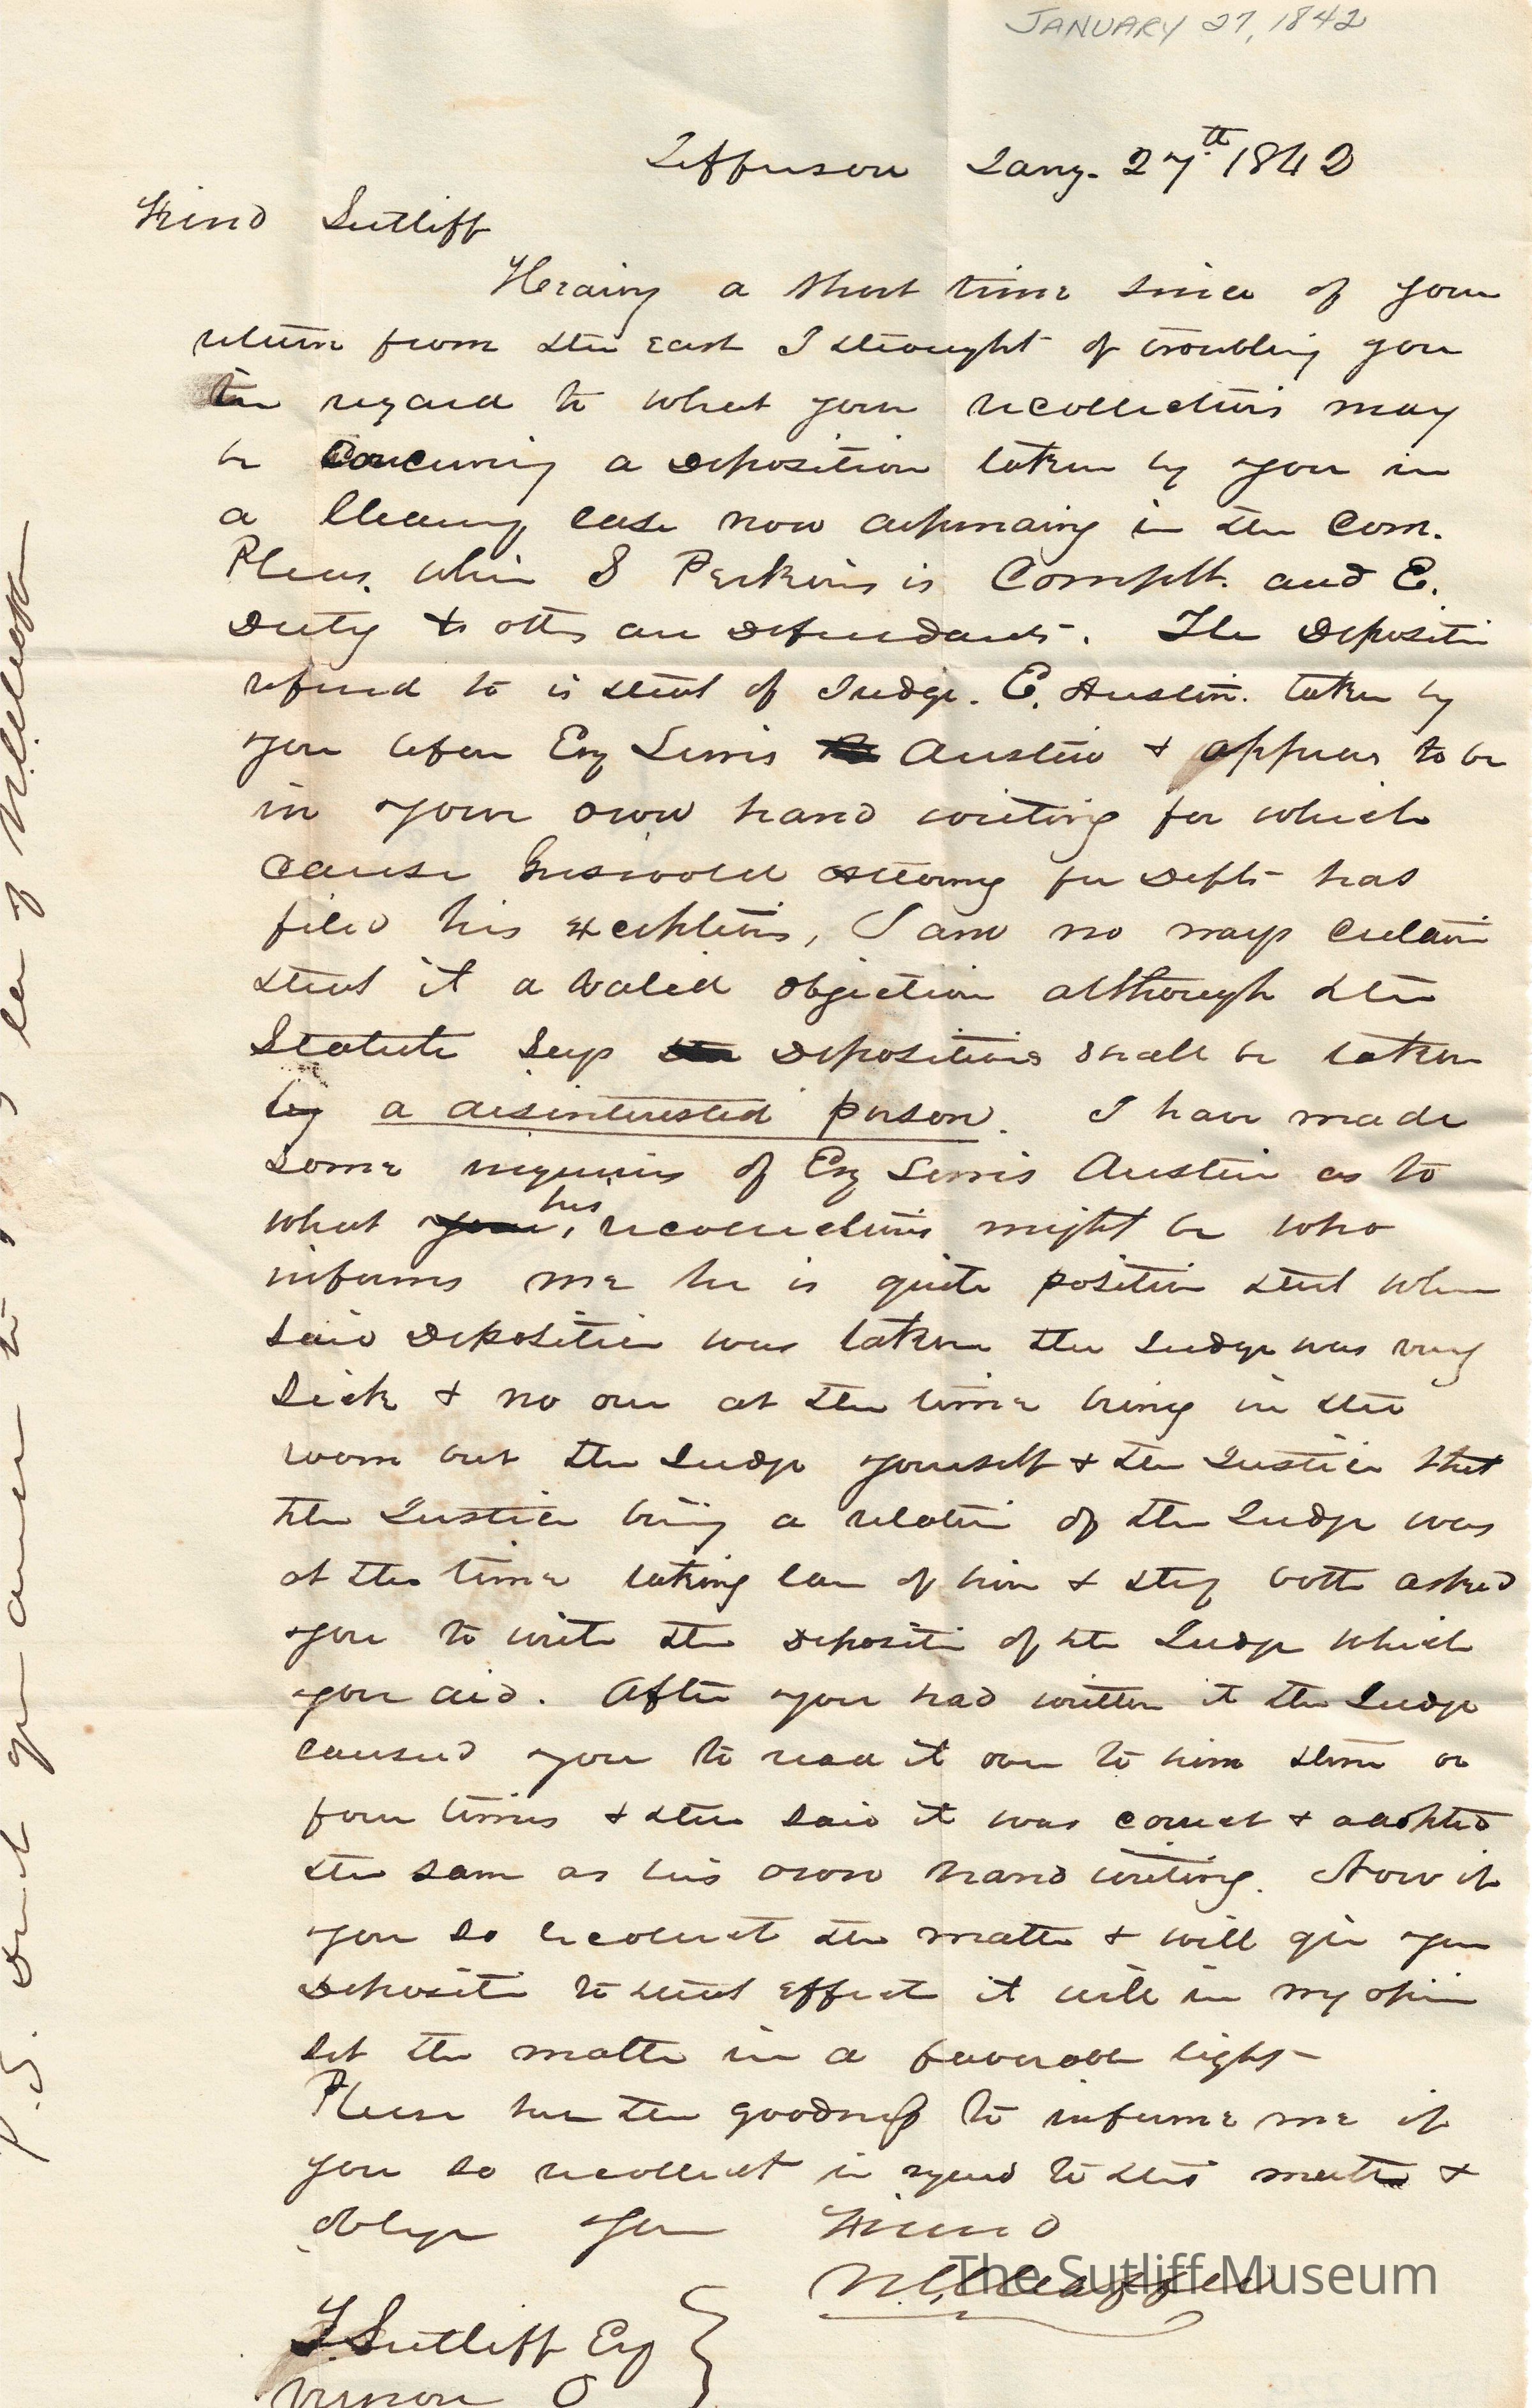 JANUARY 27, 1842
Jefferson Jany. 27th 1842
Friend Sutliff
Hearing a short time since of your
return from the east I thought of troubling you
in regard to what your recollections may
be concerning a deposition taken by you in
a case now depending in the Com.
Pleas. when S Perkins is Complt. and E.
Duty & oths are defendants. The Depositi
referred to is that of Judge. E. Austin. taken by
you before Esq Lewis Austin & appears to be
in your own hand writing for which
cause Griswold Attorney for Defts has
filed his exceptions, I am no ways certain
that it a valid objection although the
Statute says depositions shall be taken
by a disinterested person. I have made
some inquiries of Esq Lewis Austin as to
what your his recollections might be who
informs me he is quite positive that when
said deposition was taken the Judge was very
sick & no one at the time being in the
room but the Judge yourself & the Justice that
the Justice being a relative of the Judge was
at the time taking care of him & they both asked
you to write the depositi of the Judge which
you did. After you had written it the Judge
caused you to read it over to him three or
four times & then said it was correct & adopted
the same as his own hand writing. Now if
you so recollect the matter & will give your
depositi to that effect it will in my opin
set the matter in a favorable light
Please have the goodness to inform me if
you so recollect in regard to this matter &
oblige your Friend
N. L. Chaffee
The Sutliff Museum
F Sutliff Esq
Vernon O
P.S. dont you to